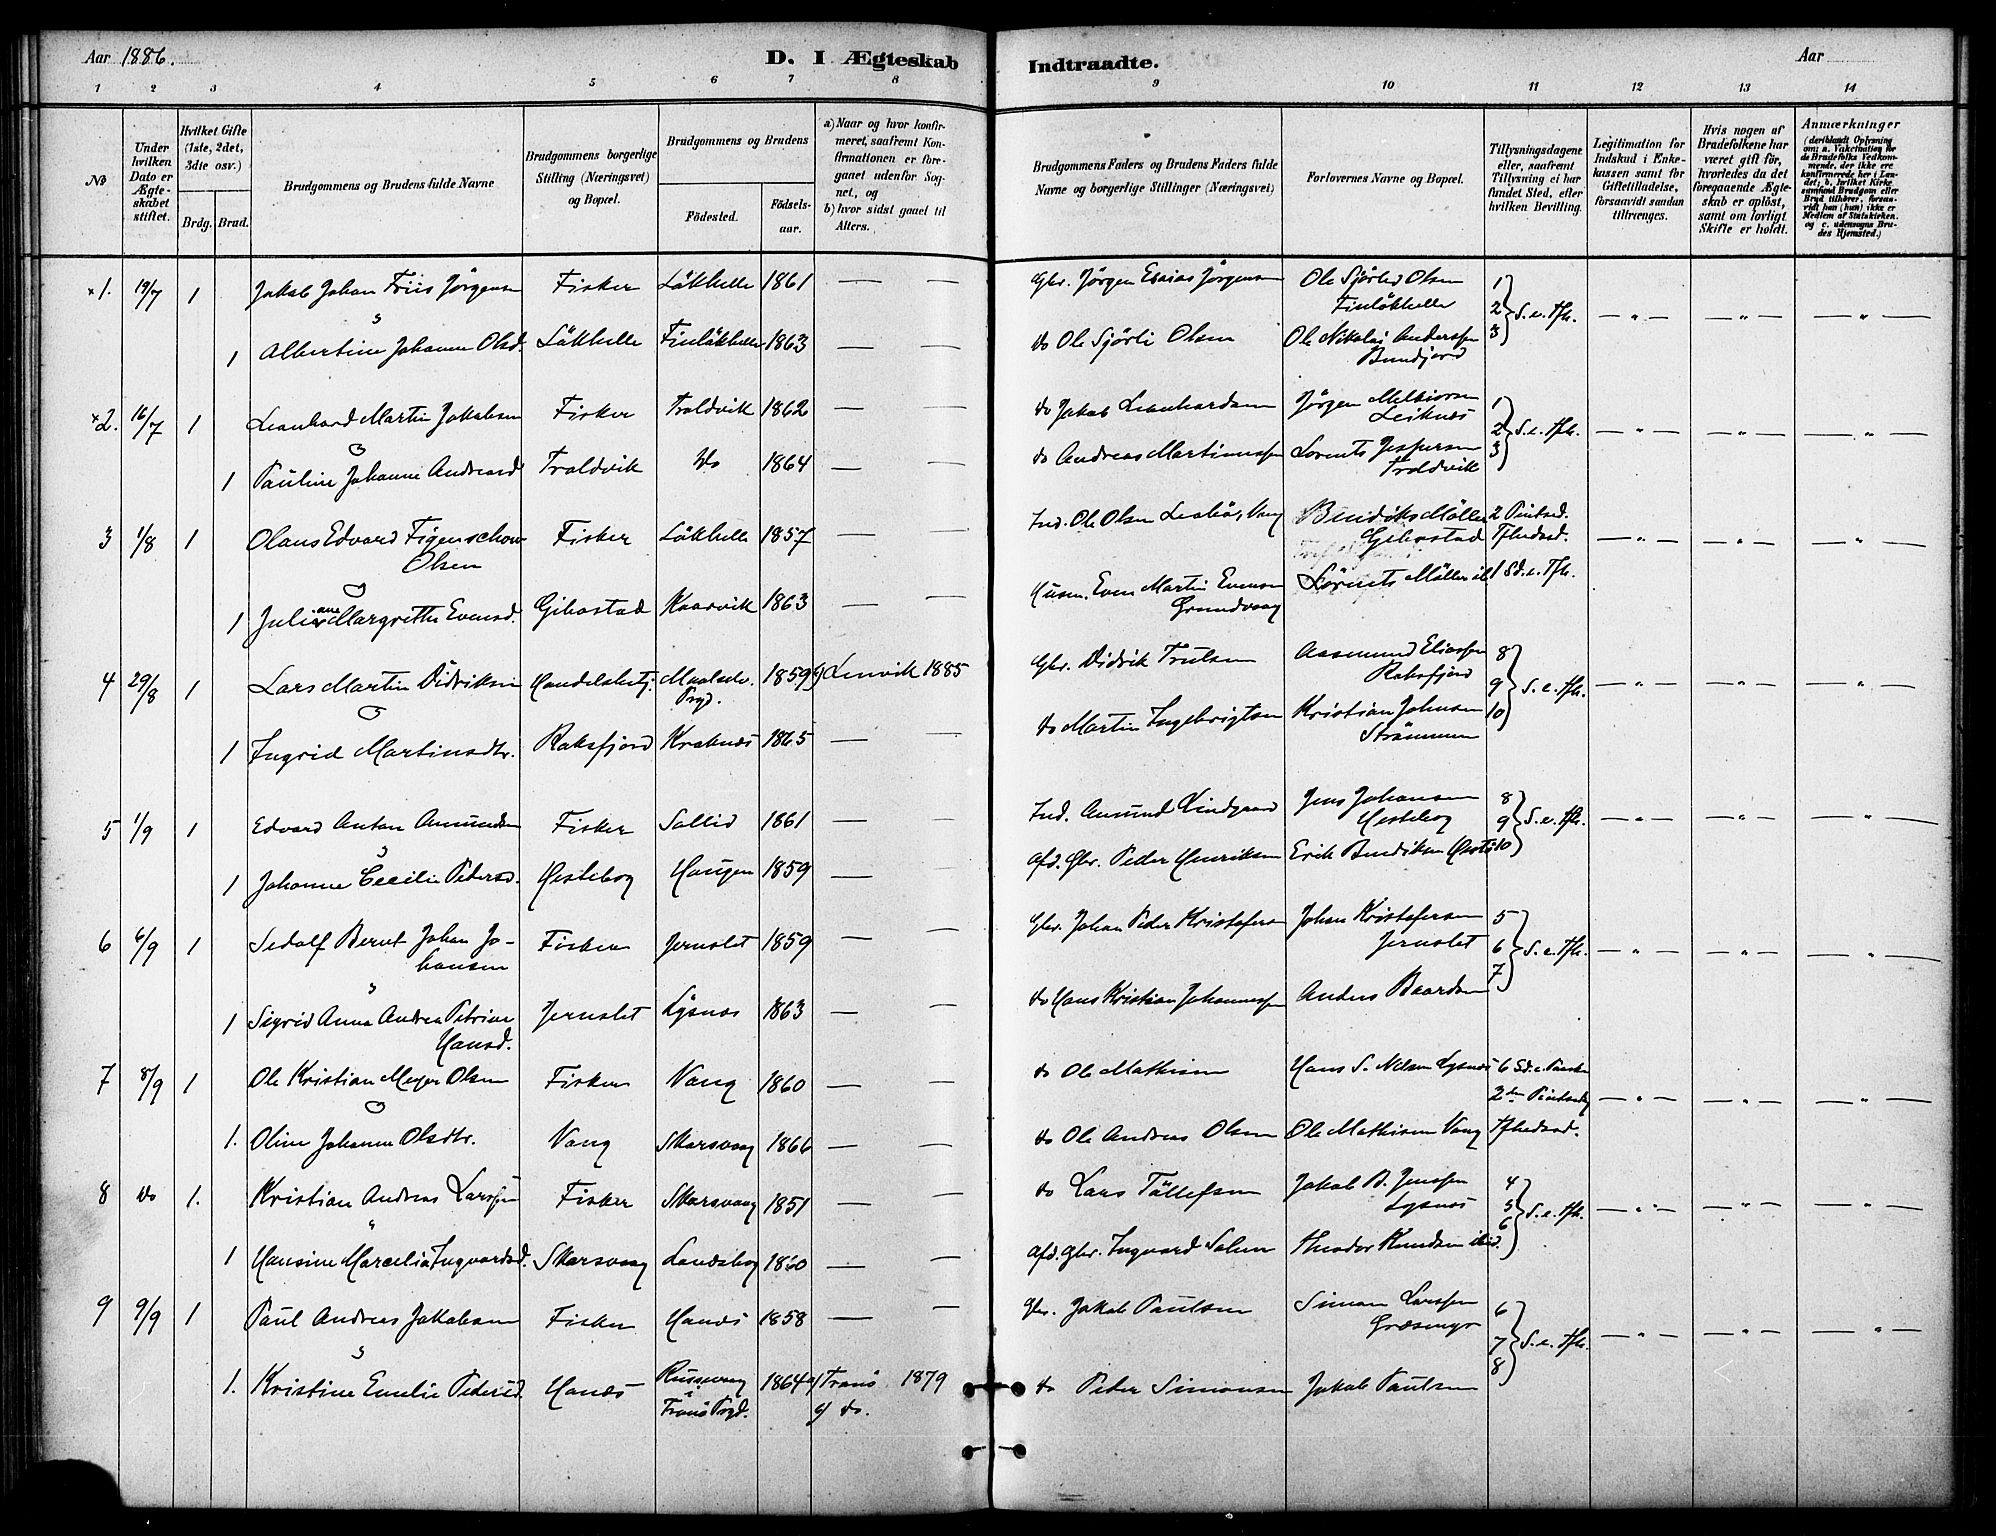 Aar 1886.
D. I Ægteskab Indtraadte.
Aar
1 2 3 4 5 6 7 8 9 10 11 12 13 14
No
Under hvilken Dato er Ægteskabet stiftet.
Hvilket Gifte (1ste, 2det, 3die osv.)
Brdg. Brud.
Brudgommens og Brudens fulde Navne
Brudgommens borgerlige Stilling (Næringsvei) og Bopæl.
Brudgommens og Brudens
Fødested.
Fødselsaar.
a) Naar og hvor konfirmeret, saafremt Konfirmationen er foregaaet udenfor Sognet, og
b) hvor sidst gaaet til Alters.
Brudgommens Faders og Brudens Faders fulde Navne og borgerlige Stillinger (Næringsvei)
Forlovernes Navne og Bopæl.
Tillysningsdagene eller, saafremt Tillysning ei har fundet Sted, efter hvilken Bevilling.
Legitimation for Indskud i Enkekassen samt for Giftetilladelse, forsaavidt saadan tiltrænges.
Hvis nogen af Brudefolkene har været gift før, hvorledes da det foregaaende Ægteskab er opløst, samt om lovligt Skifte er holdt.
Anmærkninger
(deriblandt Oplysning om: a. Vakcination for de Brudefolks Vedkommende, der ikke ere konfirmerede her i Landet; b. hvilket Kirkesamfund Brudgom eller Brud tilhører, forsaavidt han (hun) ikke er Medlem af Statskirken, og c. udensogns Brudes Hjemsted.)
×1. 19/7 1 Jakob Johan Friis Jørgensen Fisker Løkhelle 1861 — — Gbr. Jørgen Esaias Jørgensen Ole Sjørli Olsen Finløkhelle 1 2 3 } S. e. Tfh. —„— —„— —„—
1 Albertine Johanne Olsd. Løkhelle Finløkhelle 1863 — — do Ole Sjørli Olsen Ole Nikolai Anderssen Bundjord
×2. 16/7 1 Leonhard Martin Jakobsen Fisker Troldvik 1862 — — do Jakob Leonhardsen Jørgen Melkiorsen Leiknes 1 2 3 } S. e. Tfh. —„— —„— —„—
1 Pauline Johanne Andreasd. Troldvik do 1864 — — do Andreas Martinussen Lorents Jespersen Troldvik
3 1/8 1 Olaus Edvard Figenschou Olsen Fisker Løkhelle 1857 — — Ind. Ole Olsen Leabø, Vang Bendiks Møller Gibostad 2 Pintsed. Tfhedsd. —„— —„— —„—
1 Juliane Margrethe Evensd. Gibostad Kaarvik 1863 — — Husm. Even Martin Evensen Grundvaag Lorents Møller ib 1 Sd. e. Tfh.
4 29/8 1 Lars Martin Didriksen Handelsbetj. Maalselv. Prgd. 1859 b) Lenvik 1885 Gbr. Didrik Trulsen Aasmund Eliassen Raksfjord 8 9 10 } S. e. Tfh. —„— —„— —„—
1 Ingrid Martinsdtr. Raksfjord Kraknes 1865 — — do Martin Ingebrigtsen Kristian Johnsen Strømmen
5 1/9 1 Edvard Anton Amundsen Fisker Sollid 1861 — — Ind. Amund Lindgaard Jens Johansen Hestebog 8 9 10 } S. e. Tfh. —„— —„— —„—
1 Johanne Cecilie Pedersd. Hestebog Haugen 1859 — — Afd. Gbr. Peder Henriksen Erik Bendiksen
6 6/9 1 Sedolf Bernt Johan Johansen Fisker Jernslet 1859 — — Gbr. Johan Peder Kristofersen Johan Kristofersen Jernslet 5 6 7 } S. e. Tfh. —„— —„— —„—
1 Sigrid Anna Andrea Petrine Hansd. Jernslet Lysnes 1863 — — do Hans Kristian Johannessen Anders Baardsen
7 8/9 1 Ole Kristian Meyer Olsen Fisker Vang 1860 — — do Ole Mathisen Hans S. Nilsen Lysnes 6 Sd. e. Paaske 2den Pintsedag —„— —„— —„—
1. Oline Johanne Olsdtr. Vang Skarsvaag 1866 — — do Ole Andreas Olsen Ole Mathisen Vang Tfhedsd.
8 do 1. Kristian Andreas Larssen Fisker Skarsvaag 1851 — — do Lars Tøllefsen Jakob B. Jenssen Lysnes 4 5 6 } S. e. Tfh. —„— —„— —„—
1 Hansine Marcelia Ingvardsd. Skarsvaag Landsbog 1860 — — Afd. Gbr. Ingvard Salen Theodor Knudsen ibid.
9 9/9 1 Paul Andreas Jakobsen Fisker Hanes 1858 — — Gbr. Jakob Paulsen Simon Larssen Græsmyr 6 7 8 } S. e. Tfh. —„— —„— —„—
1. Kristine Emelie Pedersd. Hanes Russevaag Tromsø Prgd. 1864 a) Tromsø 1879 b) do. do Peder Simonsen Jakob Paulsen